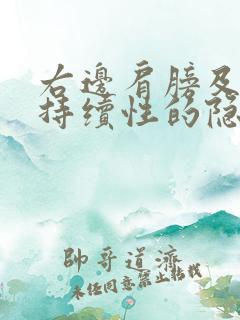 右邊肩膀及
持續性的隐
帥哥道濟
未任同意禁止转载